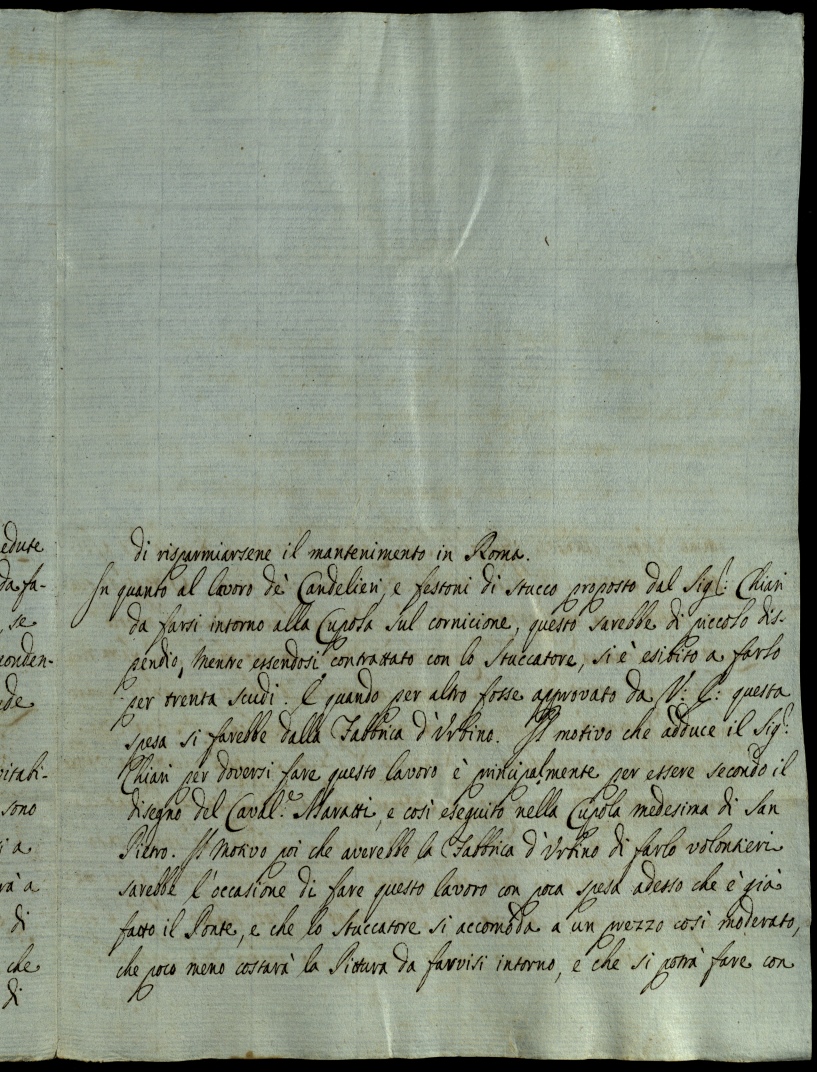 edute
da fa-
, se
ponden-
de
vitabi-
sono
i a
rà a
di
che
di
di risparmiarsene il mantenimento in Roma.
In quanto al lavoro de' Candelieri, e festoni di stucco proposto dal Sig.r: Chiari
da farsi intorno alla Cupola sul cornicione, questo sarebbe di piccolo dis-
pendio, mentre essendosi contrattato con lo Stuccatore, si è esibito a farlo
per trenta scudi. E quando per altro fosse approvato da V: E: questa
spesa si farebbe dalla Fabbrica d'Urbino. Il motivo che adduce il Sig.r:
Chiari per doversi fare questo lavoro è principalmente per essere secondo il
disegno del Caval.e Maratti, e così eseguito nella Cupola medesima di San
Pietro. Il motivo poi che averebbe la Fabbrica d'Urbino di farlo volontieri
sarebbe l'occasione di fare questo lavoro con poca spesa adesso che è già
fatto il Ponte, e che lo Stuccatore si accomoda a un prezzo così moderato,
che poco meno costarà la Pittura da farvisi intorno, e che si potrà fare con